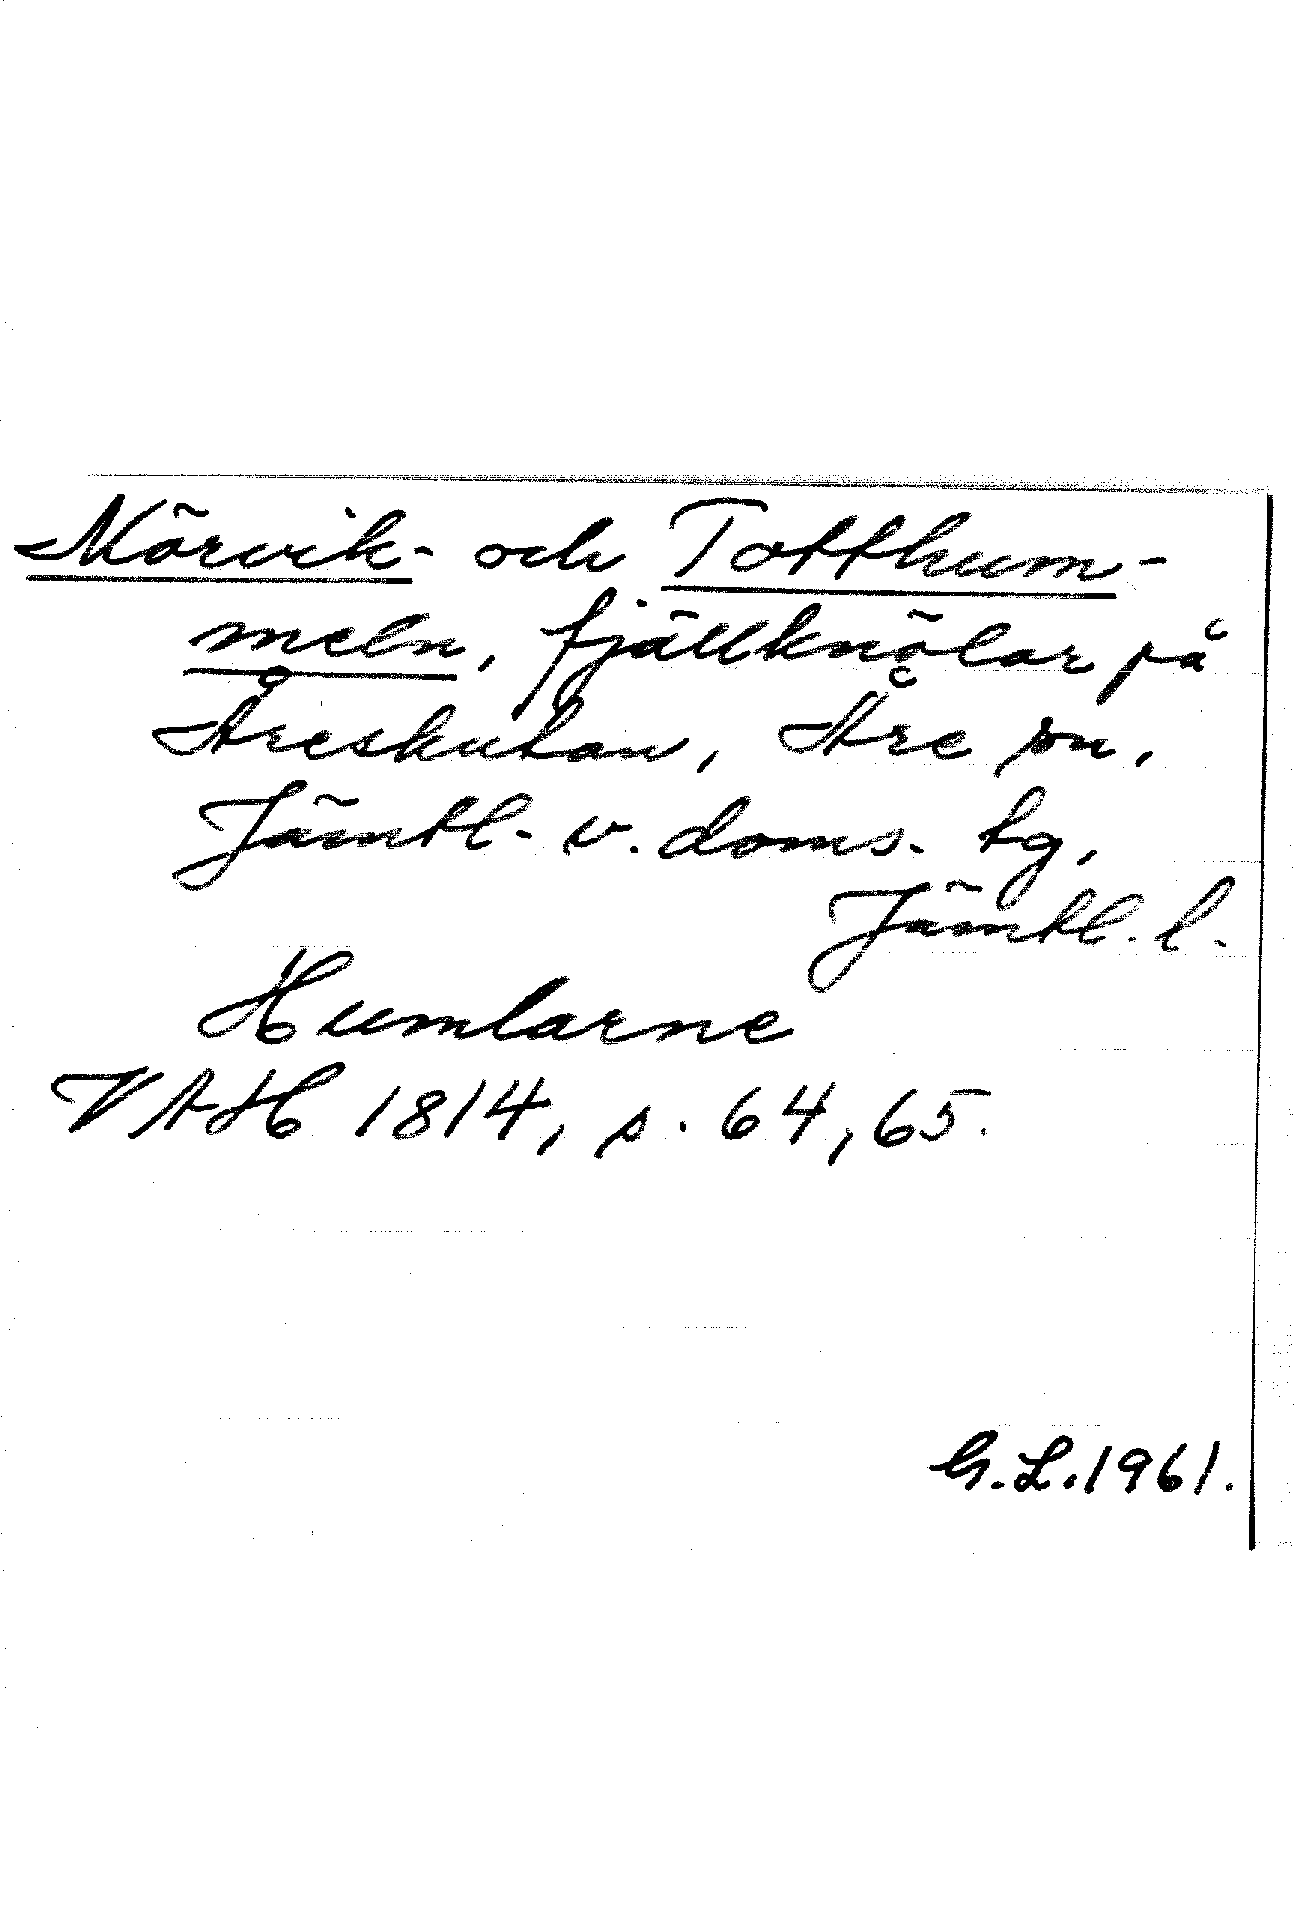 Mörvik- och Totthum-
meln, fjällknölar på
Åreskutan, Åre sn,
Jämtl. v. doms. tg,
Jämtl. l.
Humlarne
VAH 1814, s. 64, 65.
G. L. 1961.